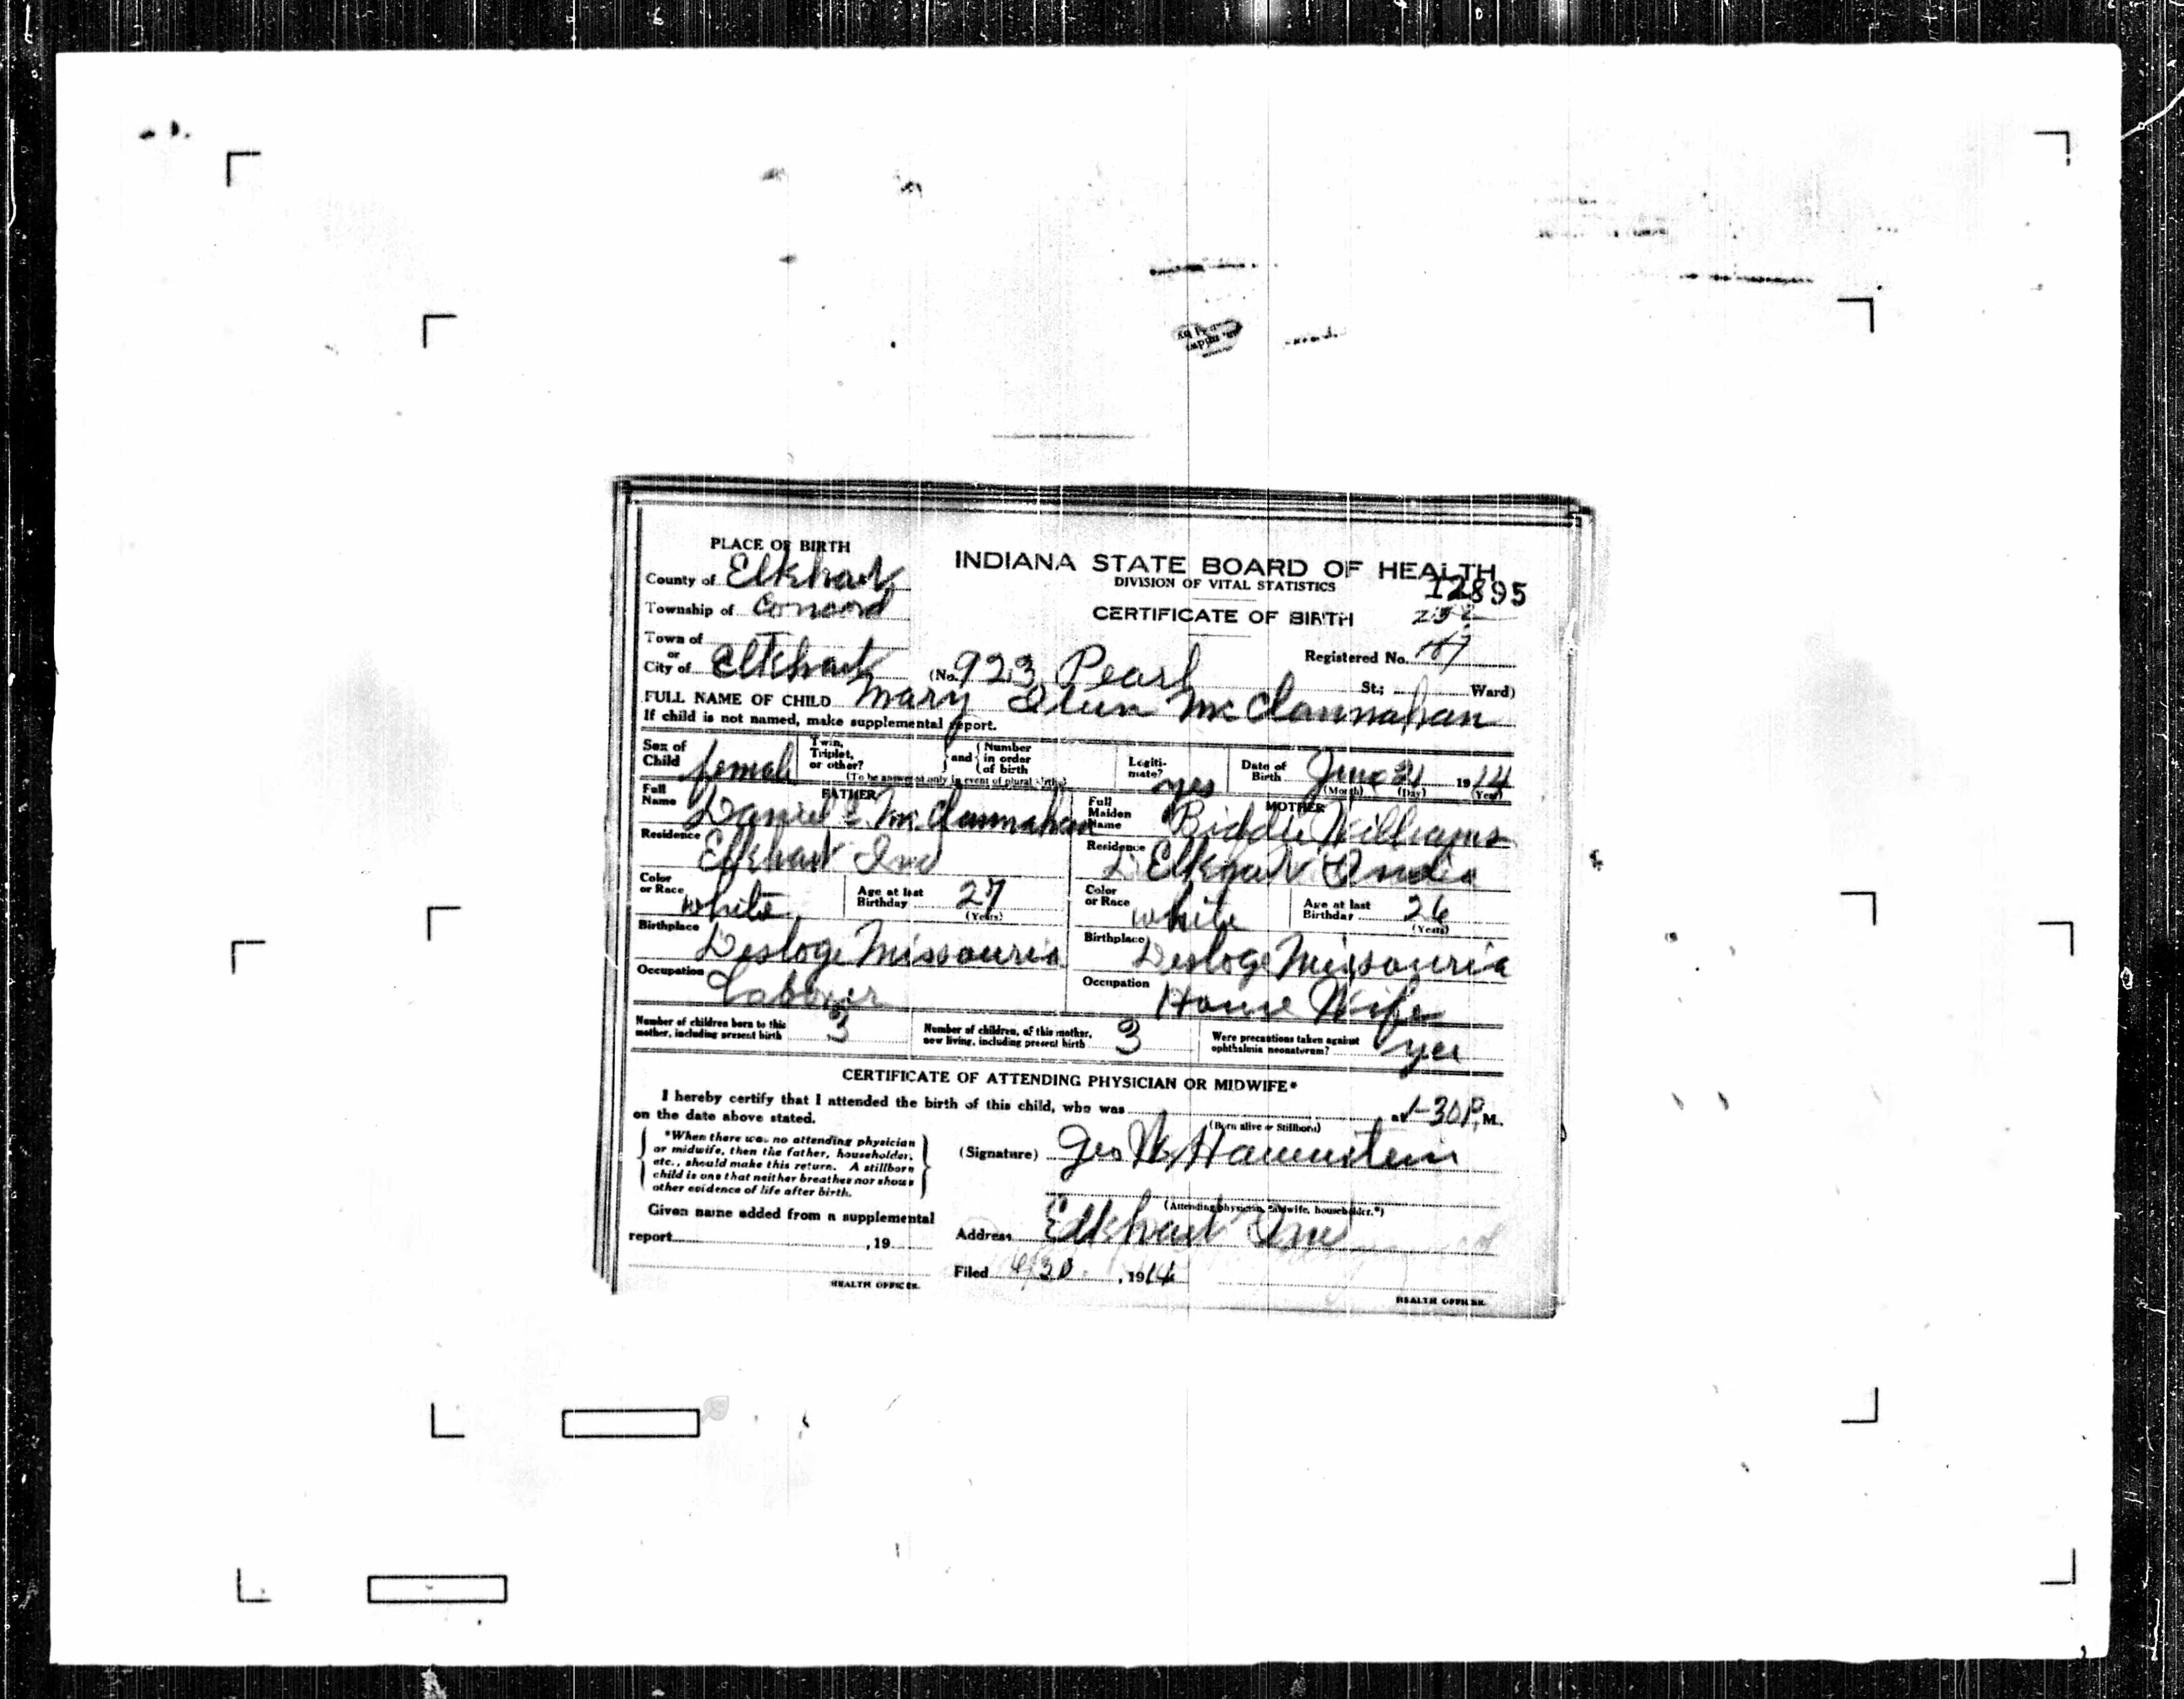 PLACE OF BIRTH
INDIANA STATE BOARD OF HEALTH
DIVISION OF VITAL STATISTICS
12895
County of Elkhart
Township of Concord
CERTIFICATE OF BIRTH
252
Town of
or
City of Elkhart (No. 923 Pearl St.; Ward)
Registered No. 187
FULL NAME OF CHILD Mary McClannahan
If child is not named, make supplemental report.
Sex of Child female
Twin, Triplet, or other? and Number in order of birth
(To be answered only in event of plural births)
Legitimate? yes
Date of Birth June 21 1914
(Month) (Day) (Year)
FATHER
Full Name Daniel E. McClannahan
MOTHER
Full Maiden Name Biddie Williams
Residence Elkhart Ind
Residence Elkhart India
Color or Race white
Age at last Birthday 27 (Years)
Color or Race white
Age at last Birthday 26 (Years)
Birthplace Desloge Missouria
Birthplace Desloge Missouria
Occupation Laborer
Occupation House Wife
Number of children born to this mother, including present birth 3
Number of children, of this mother, now living, including present birth 3
Were precautions taken against ophthalmia neonatorum? yes
CERTIFICATE OF ATTENDING PHYSICIAN OR MIDWIFE*
I hereby certify that I attended the birth of this child, who was at 1-30 P. M.
on the date above stated.
(Born alive or Stillborn)
*When there was no attending physician
or midwife, then the father, householder,
etc., should make this return. A stillborn
child is one that neither breathes nor shows
other evidence of life after birth.
(Signature) Geo W.
(Attending physician, midwife, householder.*)
Given name added from a supplemental
report , 19
Address Elkhart Ind
Filed 6/30 , 1914
HEALTH OFFICER.
HEALTH OFFICER.